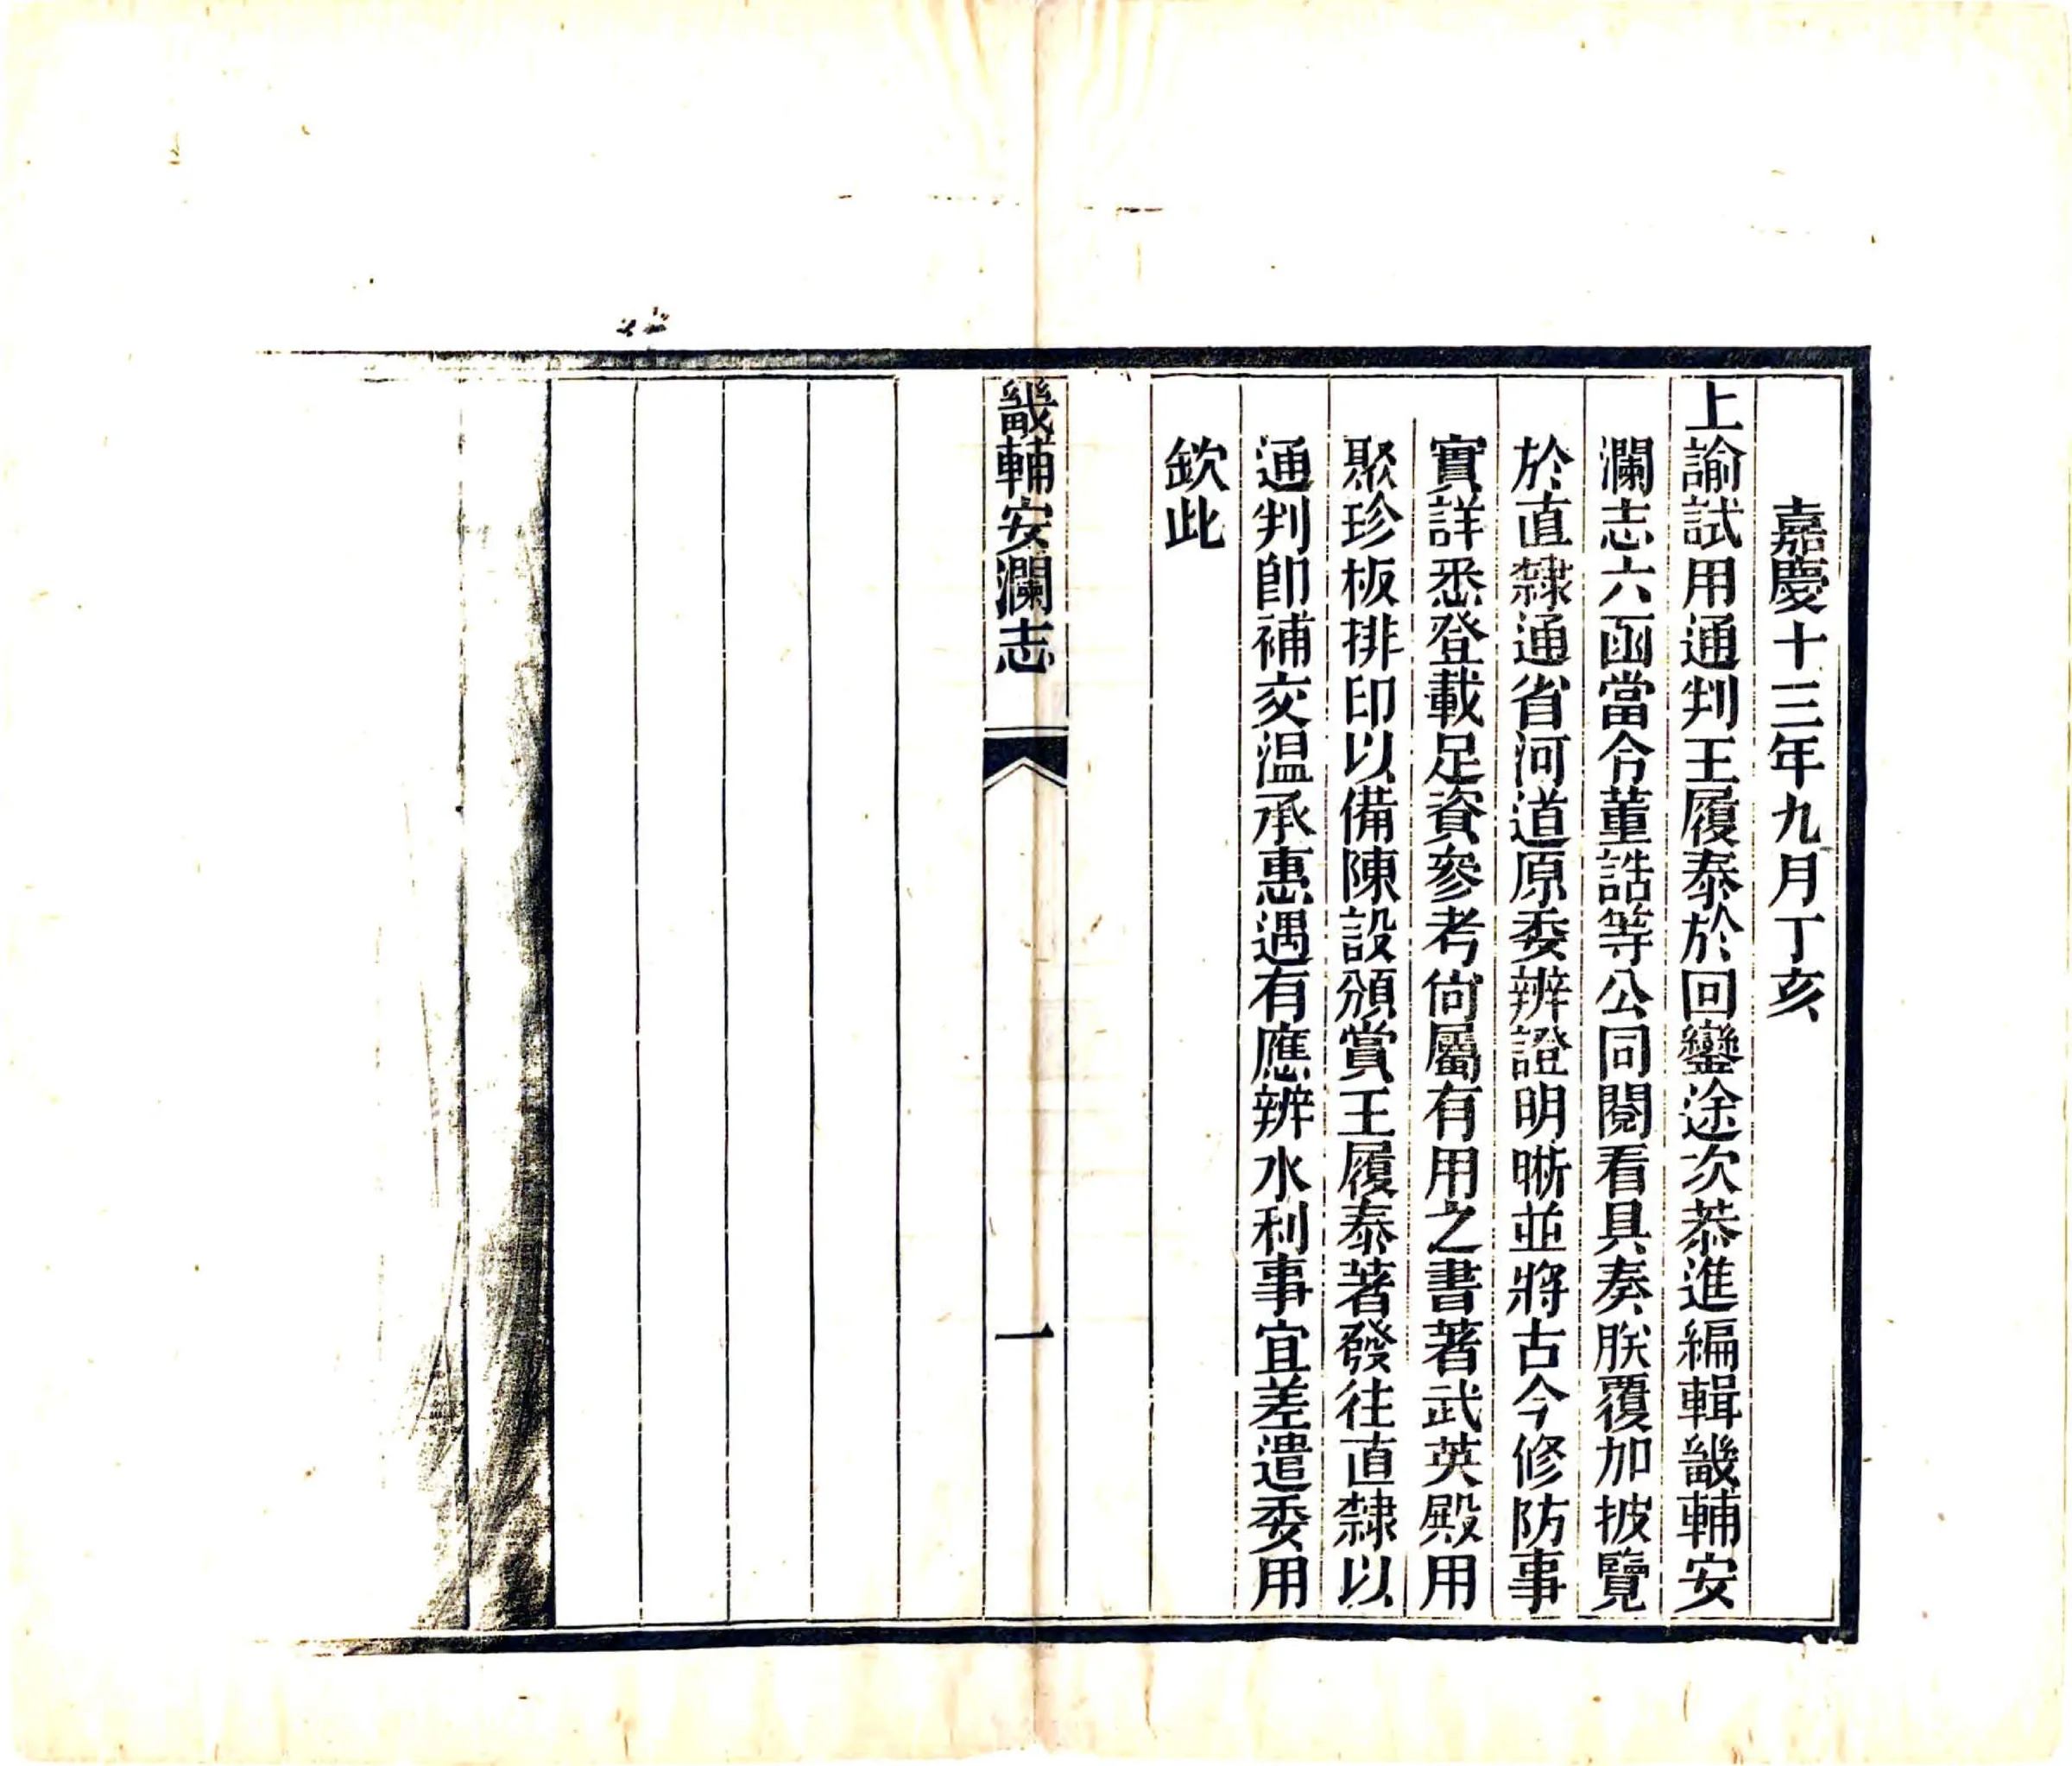 嘉慶十三年九月丁亥
上諭試用通判王履泰於回鑾途次恭進編輯畿輔安
瀾志六函當令董誥等公同閱看具奏朕覆加披覽
於直隸通省河道原委辨證明晰並將古今修防事
實詳悉登載足資參考尙屬有用之書著武英殿用
聚珍板排印以備陳設頒賞王履泰著發往直隸以
通判卽補交温承惠遇有應辦水利事宜差遣委用
欽此
畿輔安瀾志
一